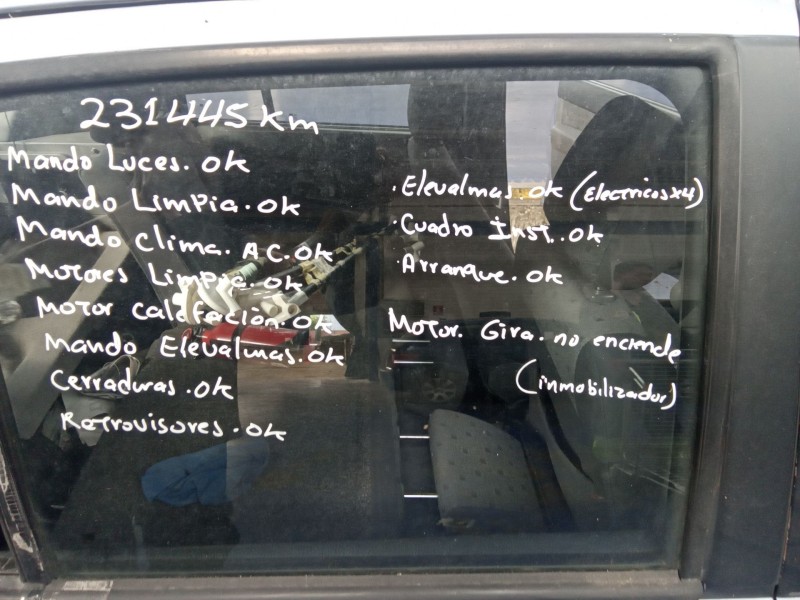 231445 km
Mando Luces. ok
Mando Limpia. ok
Mando Clima. A.C. ok
Motores Limpia. ok
Motor Calefación. ok
Mando Elevalunas. ok
Cerraduras. ok
Retrovisores. ok
· Elevalunas ok (Electricos x4)
· Cuadro Inst. ok
· Arranque. ok
Motor. Gira. no enciende
(inmobilizador)